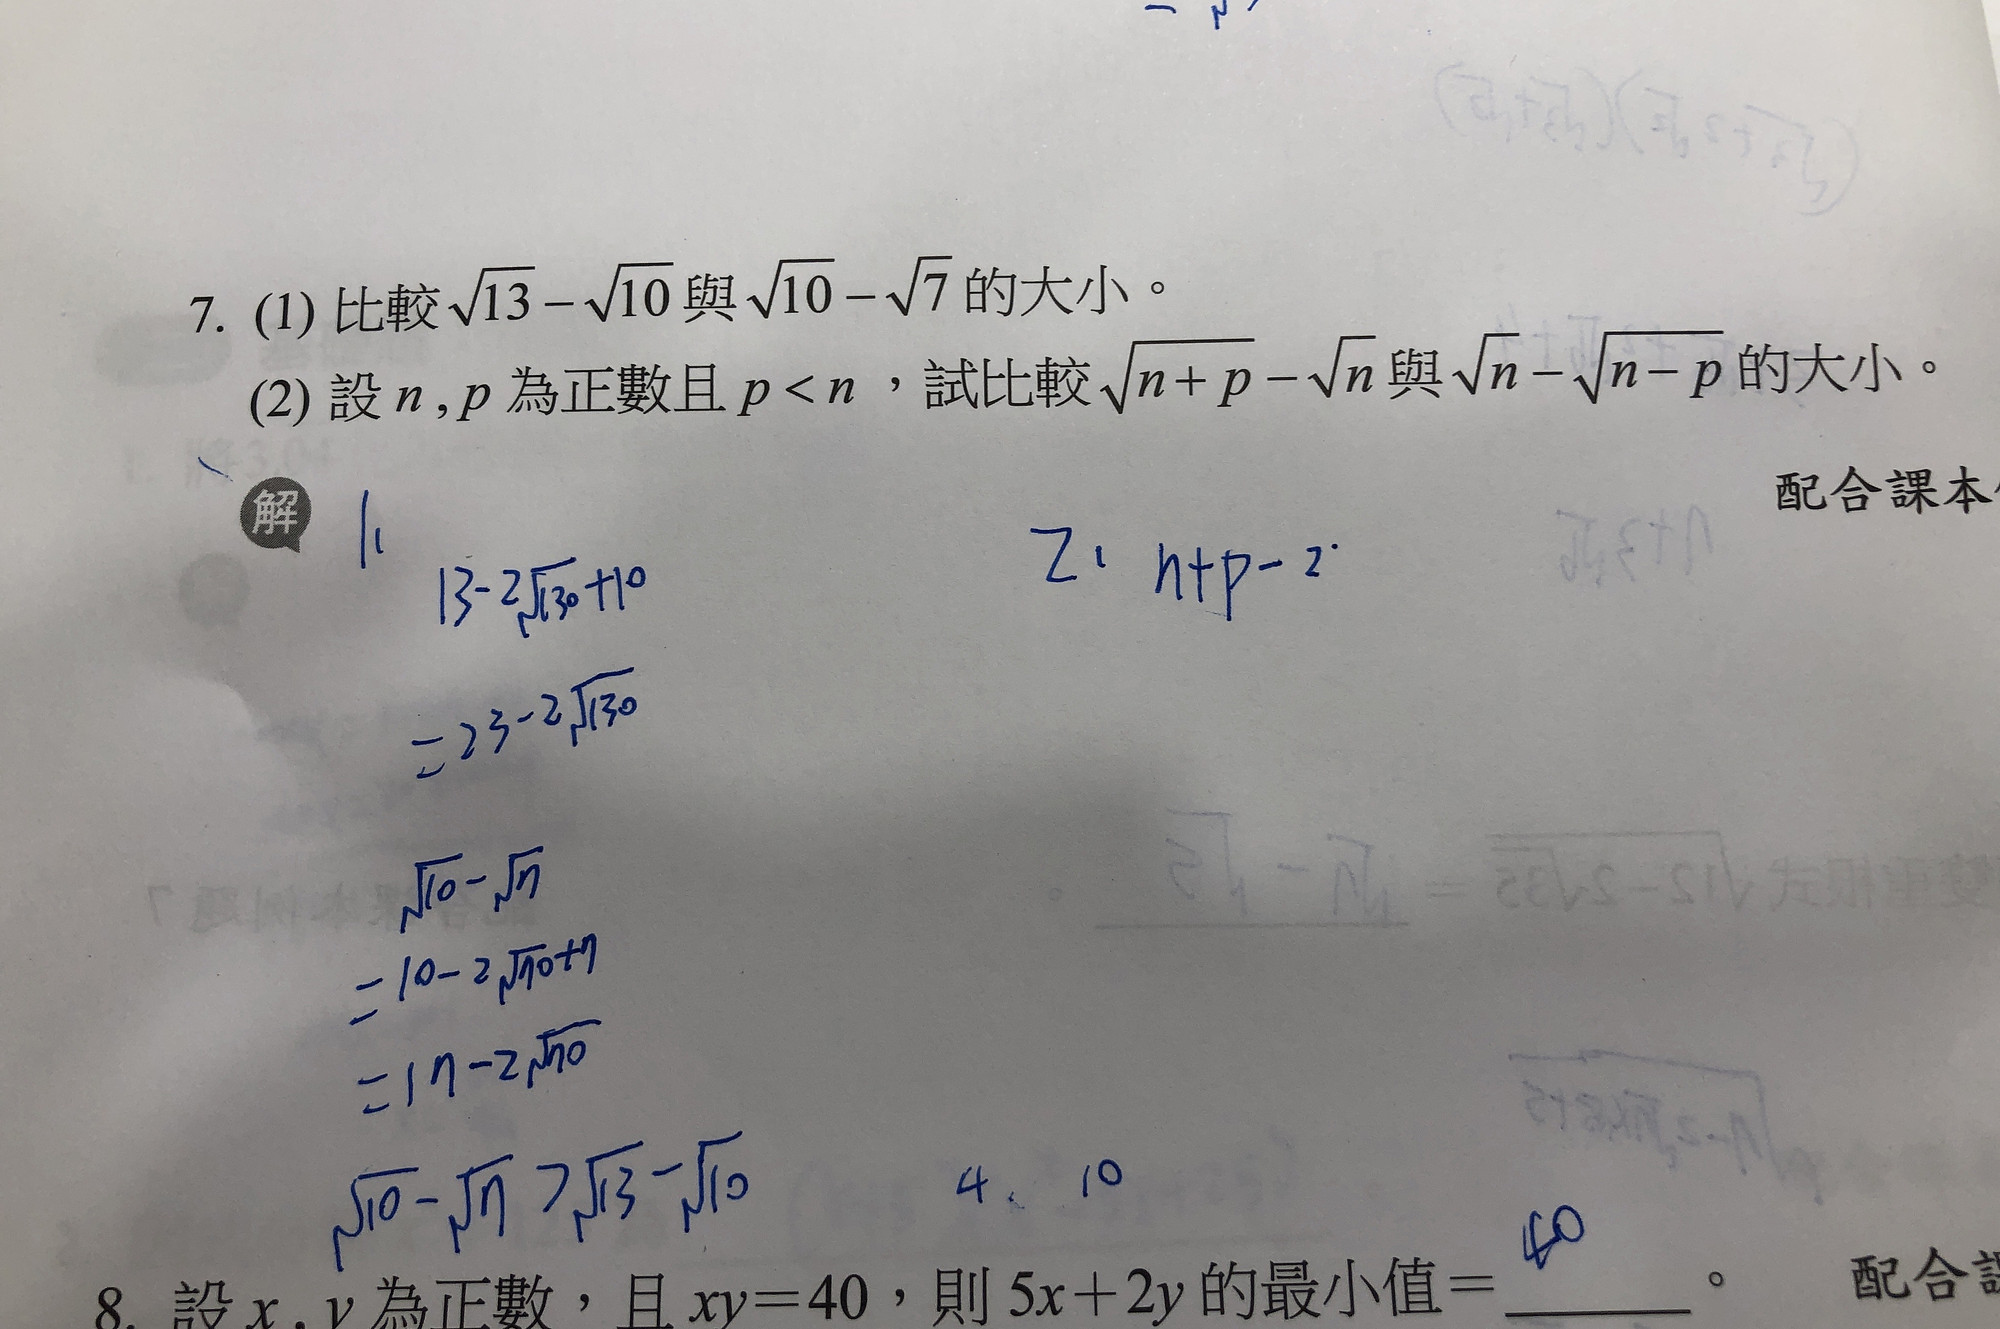 7. (1) 比較 √13 − √10 與 √10 − √7 的大小。
(2) 設 n , p 為正數且 p < n ，試比較 √(n + p) − √n 與 √n − √(n − p) 的大小。
配合課本
解 1.
2. n+p-2
13-2√130+10
=23-2√130
√10-√7
=10-2√70+7
=17-2√70
√10-√7>√13-√10
4. 10
40
8. 設 x , y 為正數，且 xy＝40，則 5x＋2y 的最小值＝ 。
配合課